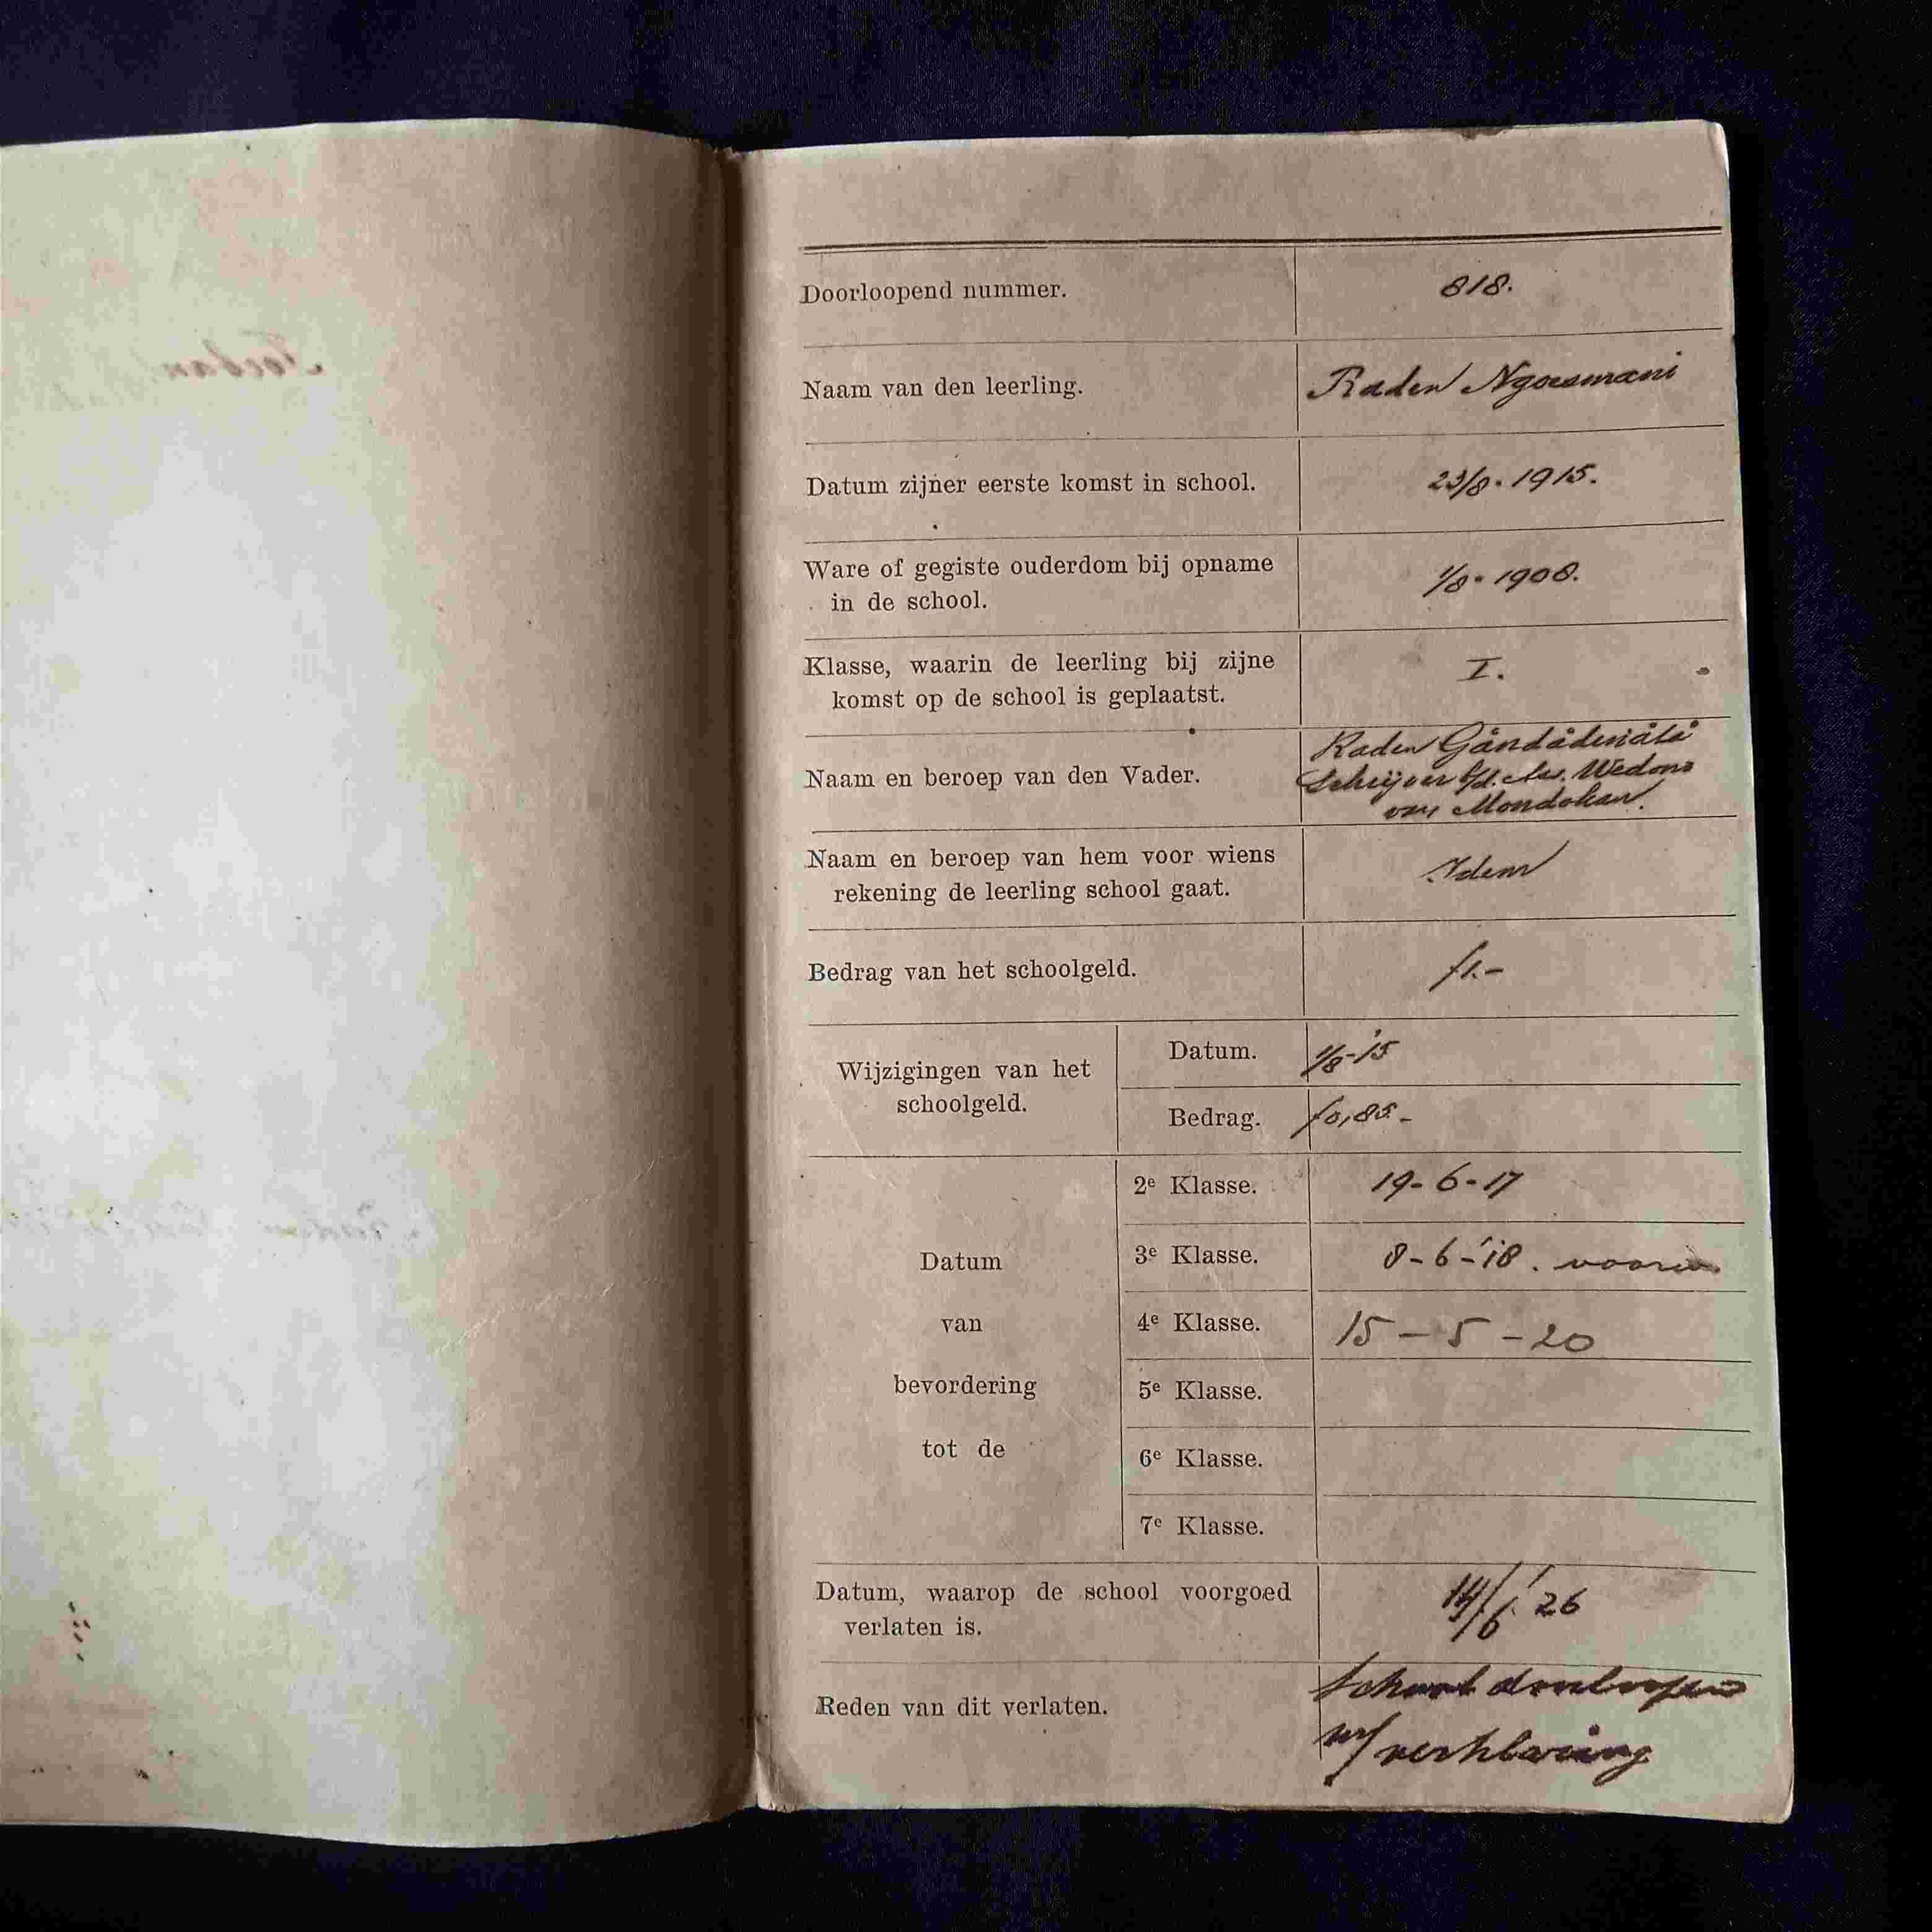 Toeban
Doorloopend nummer. 818.
Naam van den leerling. Raden Ngoesmani
Datum zijner eerste komst in school. 23/8 . 1915.
Ware of gegiste ouderdom bij opname
in de school. 1/8 . 1908.
Klasse, waarin de leerling bij zijne
komst op de school is geplaatst. I.
Naam en beroep van den Vader. Raden
Schrijver b/d. Ass. Wedono
van Mondokan.
Naam en beroep van hem voor wiens
rekening de leerling school gaat. Idem
Bedrag van het schoolgeld. f1.-
Wijzigingen van het
schoolgeld.
Datum. 1/8-'15
Bedrag. f0,85.-
Datum
van
bevordering
tot de
2e Klasse. 19-6-17
3e Klasse. 8-6-'18.
4e Klasse. 15-5-20
5e Klasse.
6e Klasse.
7e Klasse.
Datum, waarop de school voorgoed
verlaten is. 14/6 '26
Reden van dit verlaten. School doorloopen
verklaring